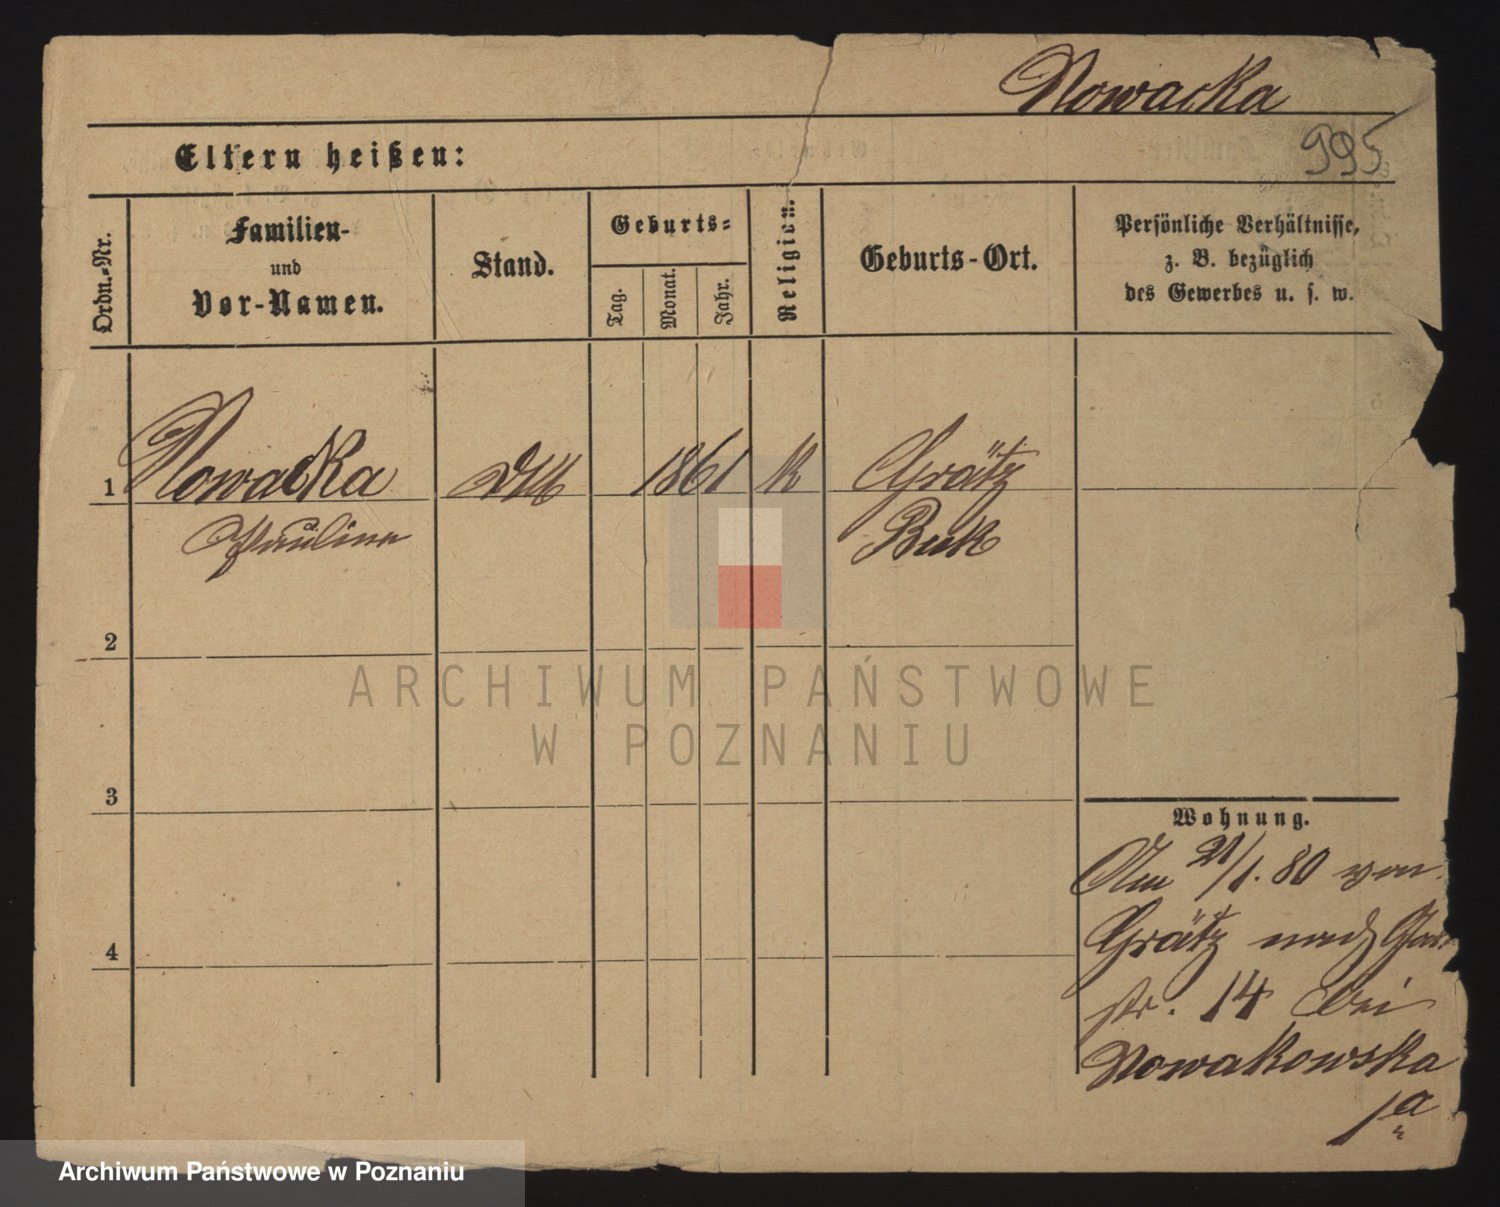 Nowacka
995
Eltern heißen:
Ordn.-Nr.
Familien-
und
Vor-Namen.
Stand.
Geburts-
Tag.
Monat.
Jahr.
Religion.
Geburts-Ort.
Persönliche Verhältnisse,
z. B. bezüglich
des Gewerbes u. s. w.
1 Nowacka 1861 k Grätz
Pauline Buk
2
3
4
Wohnung.
Am 21/1. 80 von
Grätz nach
str. 14 bei
Nowakowska
1a
ARCHIWUM PAŃSTWOWE
W POZNANIU
Archiwum Państwowe w Poznaniu